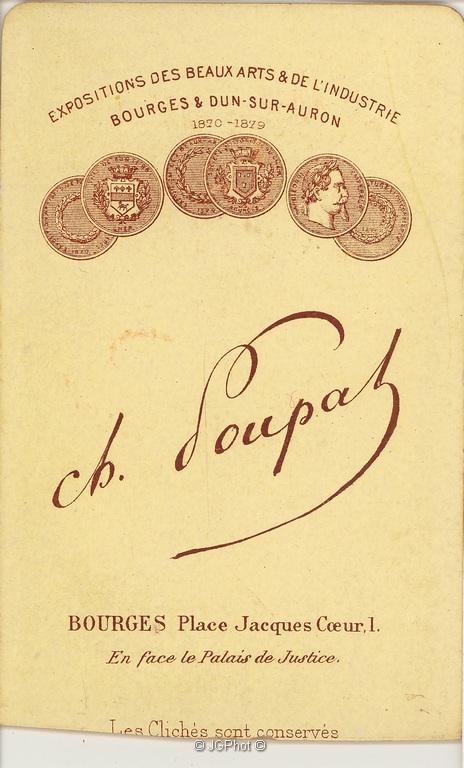 EXPOSITIONS DES BEAUX ARTS & DE L'INDUSTRIE
BOURGES & DUN-SUR-AURON
1870-1879
ch. Poupat
BOURGES Place Jacques Cœur, 1.
En face le Palais de Justice.
Les Clichés sont conservés
© JGPhot ©